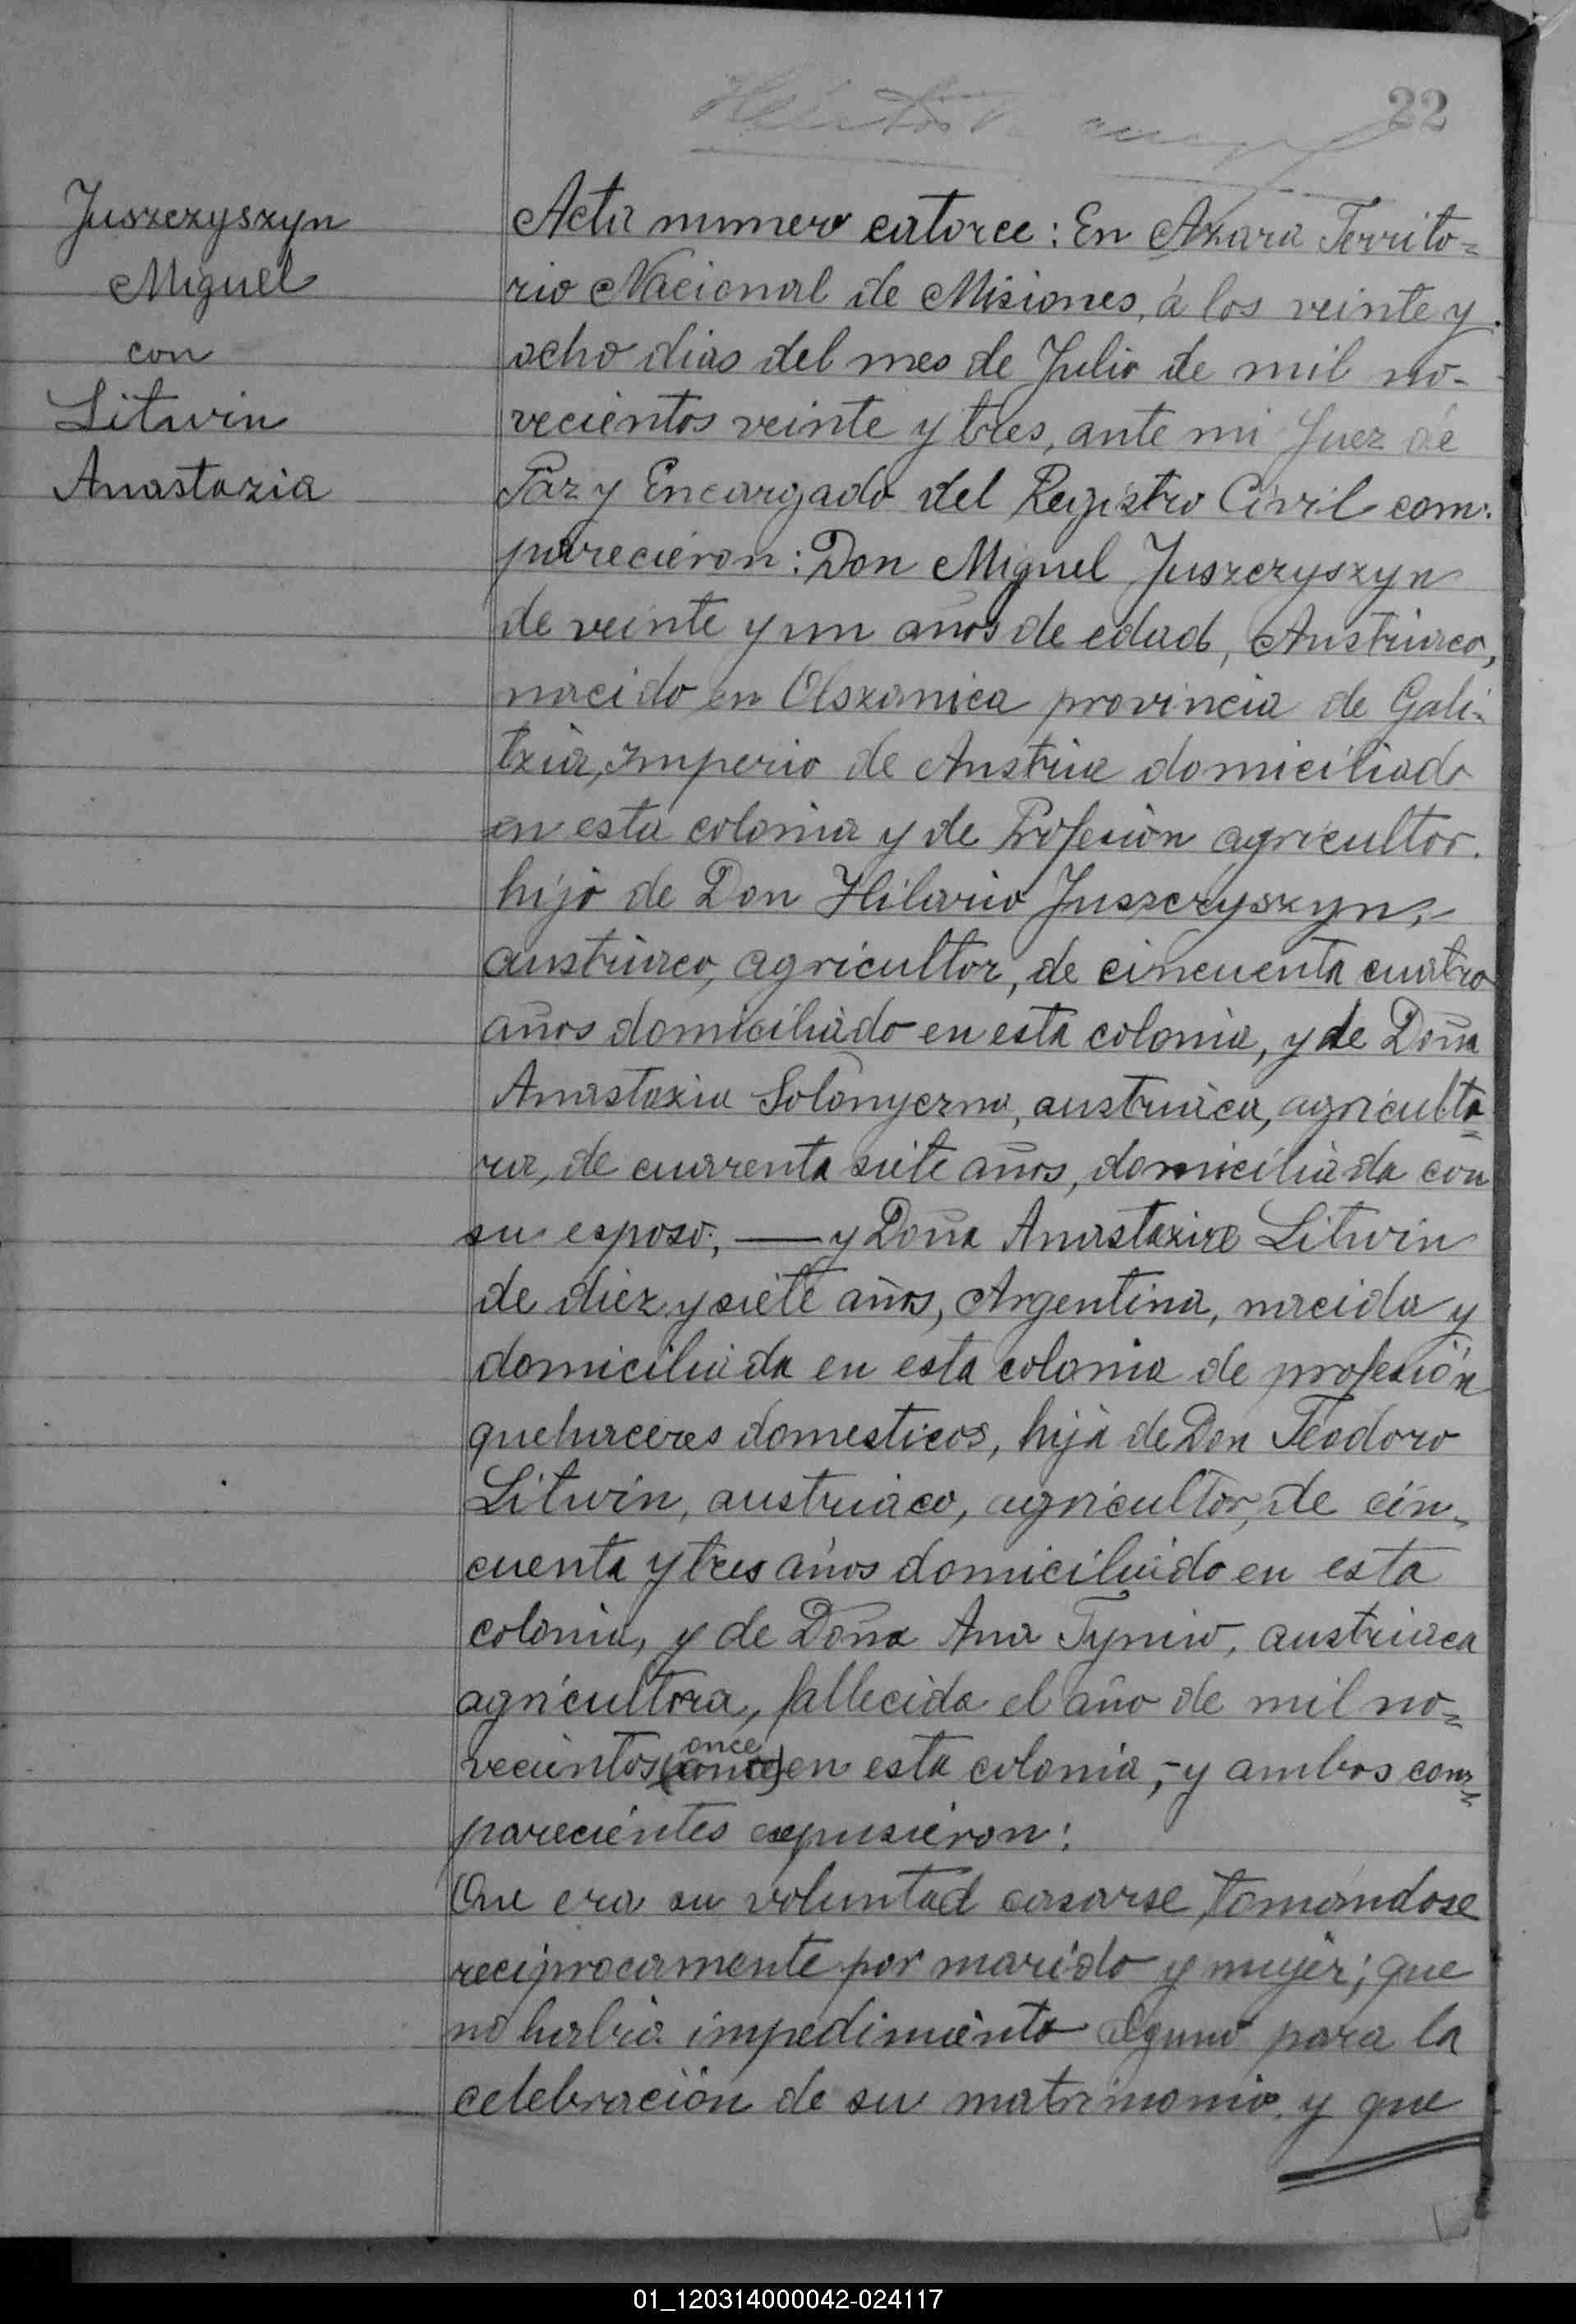 22
Juszczyszyn
Miguel
con
Litwin
Anastazia
Acta numero catorce: En Azara Territo=
rio Nacional de Misiones, á los veinte y
ocho dias del mes de Julio de mil no-
vecientos veinte y tres, ante mi Juez de
Paz y Encargado del Registro Civil com-
parecieron: Don Miguel Juszczyszyn
de veinte y un años de edad, Austriaco,
nacido en Olszanica provincia de Gali-
tzia, Imperio de Austria domiciliado
en esta colonia y de Profesion agricultor.
hijo de Don Hilario Juszczyszyn,-
austriaco, agricultor, de cincuenta cuatro
años domiciliado en esta colonia, y de Doña
Anastazia Solonyczna, austriaca, agriculto=
ra, de cuarenta siete años, domiciliada con
su esposo; — y Doña Anastazia Litwin
de diez y siete años, Argentina, nacida y
domiciliada en esta colonia de profesión
quehaceres domesticos, hija de Don Teodoro
Litwin, austriaco, agricultor, de cin-
cuenta y tres años domiciliado en esta
colonia, y de Doña Ana Tyniw, austriaca
agricultora, fallecida el año de mil no=
once
vecientos (once) en esta colonia,- y ambos com=
parecientes expusieron:
Que era su voluntad casarse, tomándose
reciprocamente por marido y mujer; que
no habia impedimiento alguno para la
celebración de su matrimonio y que
01_120314000042-024117